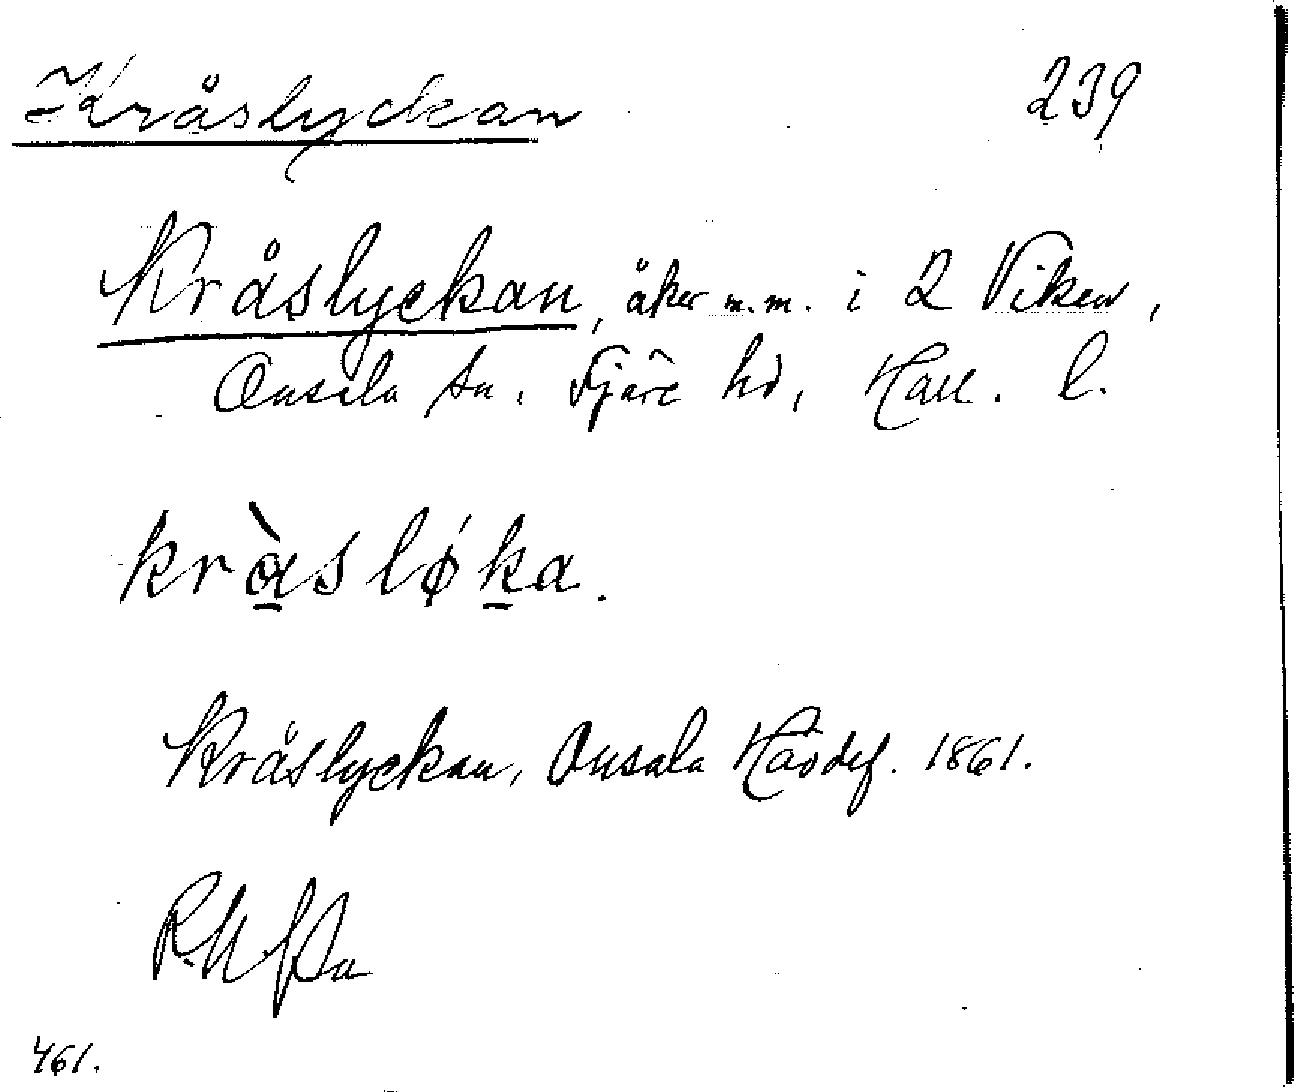 Kråslyckan 239
Kråslyckan, åker m.m. i 2 Viken,
Onsala sn, Fjäre hd, Hall. l.
krὰsløka.
Kråslyckan, Onsala Hävdef. 1861.
461.